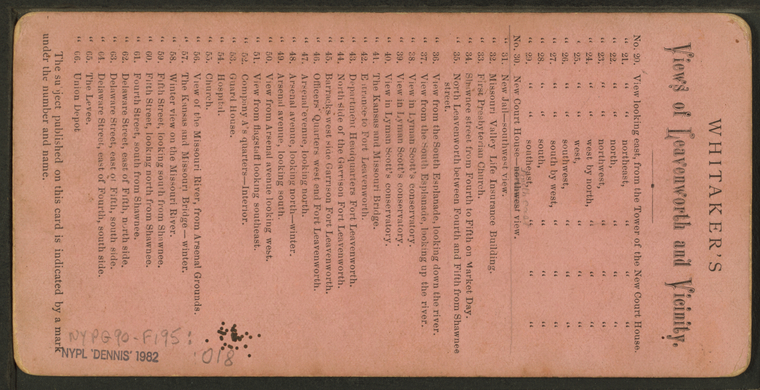 WHITAKER'S
Views of Leavenworth and Vicinity.
No. 20. View looking east, from the Tower of the New Court House.
" 21. " northeast, " " "
" 22. " north, " " "
" 23. " northwest, " " "
" 24. " west by north, " " "
" 25. " west, " " "
" 26. " southwest, " " "
" 27. " south by west, " " "
" 28. " south, " " "
" 29. " southeast, " " "
No. 30. New Court House—northwest view.
" 31. New Jail—southwest view.
" 32. Missouri Valley Life Insurance Building.
" 33. First Presbyterian Church.
" 34. Shawnee street from Fourth to Fifth on Market Day.
" 35. North Leavenworth between Fourth and Fifth from Shawnee
street.
" 36. View from the South Esplanade, looking down the river.
" 37. View from the South Esplanade, looking up the river.
" 38. View in Lyman Scott's conservatory.
" 39. View in Lyman Scott's conservatory.
" 40. View in Lyman Scott's conservatory.
" 41. The Kansas and Missouri Bridge.
" 42. Entrance to Fort Leavenworth.
" 43. Department Headquarters Fort Leavenworth.
" 44. North Side of the Garrison Fort Leavenworth.
" 45. Barracks west side Garrison Fort Leavenworth.
" 46. Officers' Quarters west end Fort Leavenworth.
" 47. Arsenal avenue, looking north.
" 48. Arsenal avenue, looking north—winter.
" 49. Arsenal avenue, looking south.
" 50. View from Arsenal avenue looking west.
" 51. View from flagstaff looking southeast.
" 52. Company A's quarters—Interior.
" 53. Guard House.
" 54. Hospital.
" 55. Church.
" 56. View of the Missouri River, from Arsenal Grounds.
" 57. The Kansas and Missouri Bridge—winter.
" 58. Winter view on the Missouri River.
" 59. Fifth Street, looking south from Shawnee.
" 60. Fifth Street, looking north from Shawnee.
" 61. Fourth Street, south from Shawnee.
" 62. Delaware Street, east of Fifth, north side.
" 63. Delaware Street, east of Fifth, south side.
" 64. Delaware Street, east of Fourth, south side.
" 65. The Levee.
" 66. Union Depot
The su ject published on this card is indicated by a mark
under the number and name.
NYPG90-F195:
018
NYPL 'DENNIS' 1982